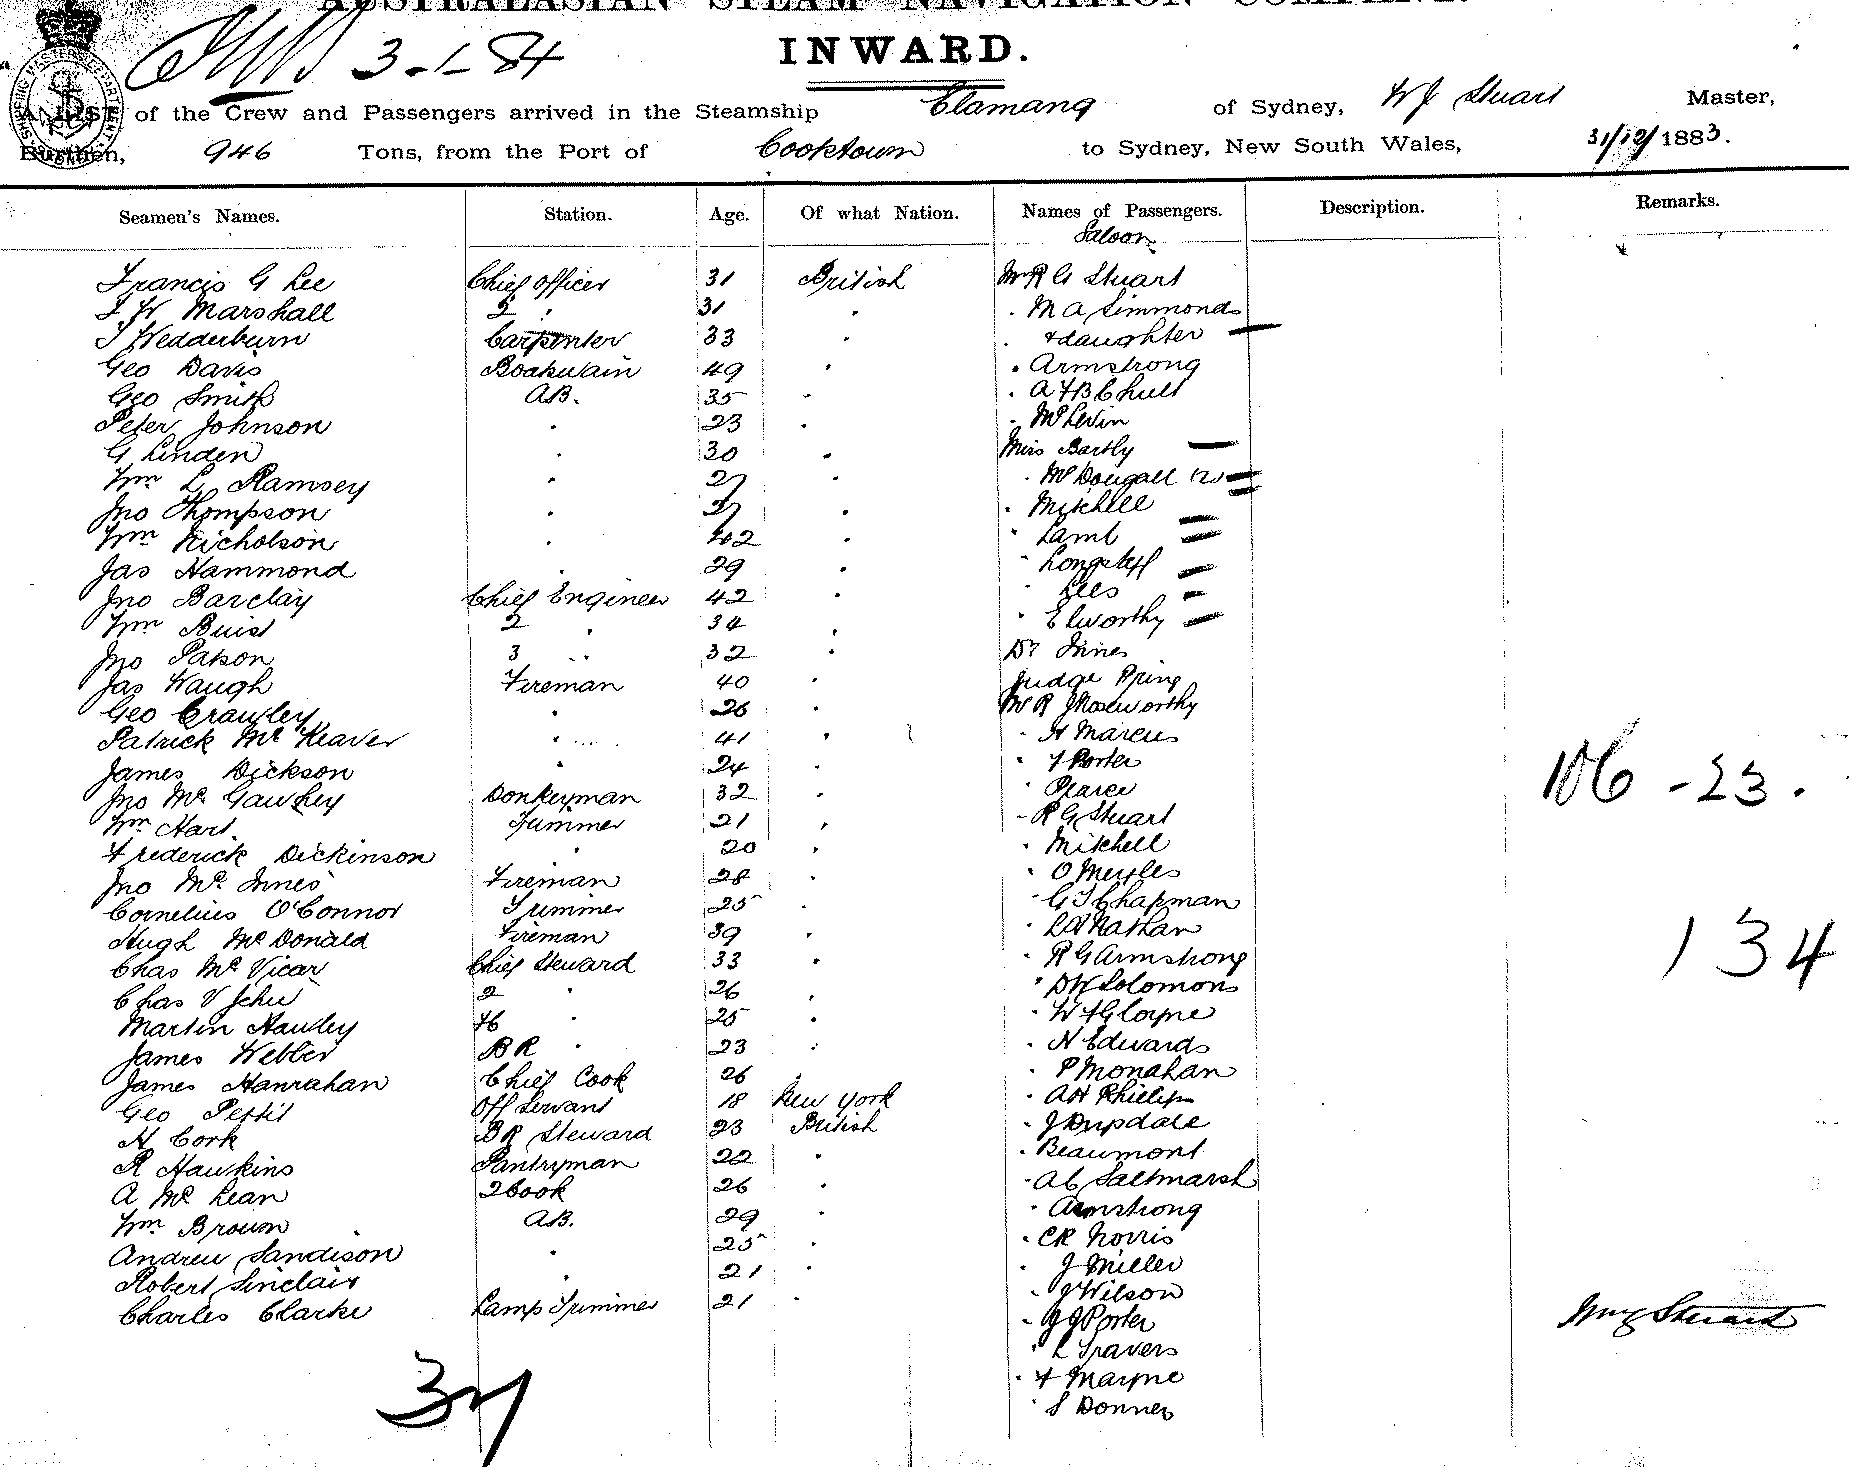 AUSTRALASIAN STEAM NAVIGATION COMPANY.
INWARD.
3-1-84
A LIST of the Crew and Passengers arrived in the Steamship Elamang of Sydney, W J Stuart Master,
Burthen, 946 Tons, from the Port of Cooktown to Sydney, New South Wales, 31/12/1883.
Seamen's Names. Station. Age. Of what Nation. Names of Passengers. Description. Remarks.
Saloon
Francis G Lee Chief Officer 31 British Mr R G Stuart
Marshall 2 " 31 " " M A Simmonds
Wedderburn Carpenter 33 " " & daughter
Geo Davis Boatswain 49 " " Armstrong
Geo Smith A.B. 35 " "
Peter Johnson " 23 " " McLevin
G Linden " 30 " Miss Bartly
Wm L Ramsey " 27 " " McDougall
Jno Thompson " 37 " " Mitchell
Wm Nicholson " 42 " " Lamb
Jas Hammond " 29 " " Longstaff
Jno Barclay Chief Engineer 42 " " Lees
Wm Buist 2 " 34 " " Elworthy
Jno Patson 3 " 32 " Dr Innes
Jas Waugh Fireman 40 " Judge Pring
Geo Crawley " 26 " Mr R
Patrick Mc Keaver " 41 " " H Marcus
James Dickson " 24 " " F Porter
Jno Mc Gawley Donkeyman 32 " " Pearce
Wm Hart Trimmer 21 " " R G Stuart
Frederick Dickinson " 20 " " Mitchell
Jno Mc Innes Fireman 28 " " O
Cornelius O'Connor Trimmer 25 " " G T Chapman
Hugh McDonald Fireman 39 " " Nathan
Chas Mc Vicar Chief Steward 33 " " R G Armstrong
Chas V 2 " 26 " " Solomons
Martin Hawley " 25 " "
James Webber BR " 23 " " H Edwards
James Hanrahan Chief Cook 26 " " P Monahan
Geo Pettit Off Servant 18 New York " A H Phillips
H Cork BR Steward 23 British " J
R Hawkins Pantryman 22 " " Beaumont
A McLean 2 Cook 26 " " A C Saltmarsh
Wm Brown A.B. 29 " " Armstrong
Andrew Sandison " 25 " " C R Norris
Robert Sinclair " 21 " " J Miller
Charles Clarke Lamp Trimmer 21 " " J Wilson
" J J Porter
" L Travers
" F Mayne
" S Donner
37
106 - 23.
134
Stuart